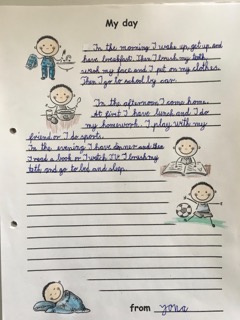 My day
In the morning I wake up, get up and
have breakfast. Then I brush my teeth
wash my face and I put on my clothes.
Then I go to school by car.
In the afternoon I come home.
At first I have lunch and I do
my homework. I play with my
friend or I do sports.
In the evening I have dinner and then
I read a book or I watch TV I brush my
teth and go to bed and sleep.
from